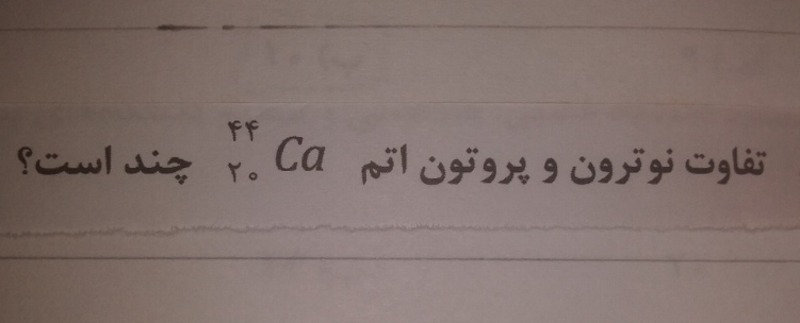 تفاوت نوترون و پروتون اتم ⁴⁴₂₀Ca چند است؟